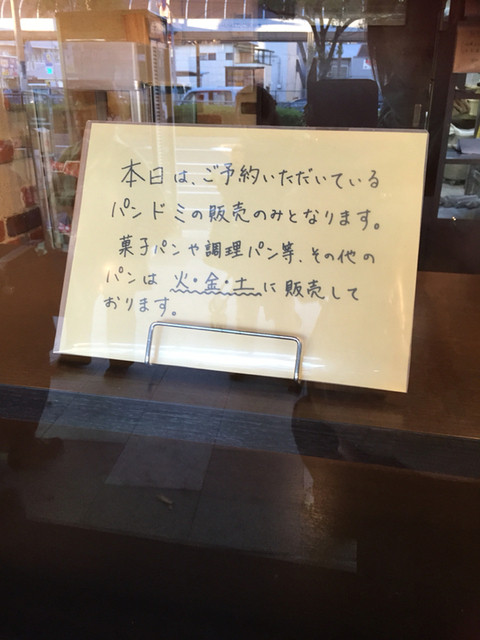 本日は、ご予約いただいている
パンドミの販売のみとなります。
菓子パンや調理パン等、その他の
パンは 火・金・土に販売して
おります。